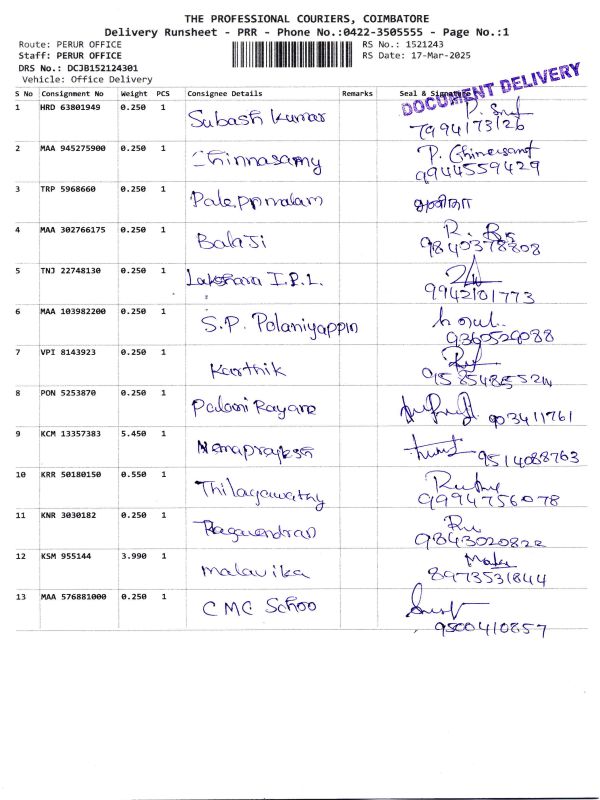 THE PROFESSIONAL COURIERS, COIMBATORE
Delivery Runsheet - PRR - Phone No.:0422-3505555 - Page No.:1
Route: PERUR OFFICE RS No.: 1521243
Staff: PERUR OFFICE RS Date: 17-Mar-2025
DRS No.: DCJB152124301
Vehicle: Office Delivery
DOCUMENT DELIVERY
S No Consignment No Weight PCS Consignee Details Remarks Seal & Signature
1 HRD 63801949 0.250 1 Subash Kumar
7994173126
2 MAA 945275900 0.250 1 Chinnasamy P.
9944559429
3 TRP 5968660 0.250 1
4 MAA 302766175 0.250 1 Balaji
9840378808
5 TNJ 22748130 0.250 1 Lakshara I.P.L.
9942101773
6 MAA 103982200 0.250 1 S.P. Polaniyappin
9360529088
7 VPI 8143923 0.250 1 Karthik
8 PON 5253870 0.250 1 Palani Rayane
9003411761
9 KCM 13357383 5.450 1 Hemaprakash
9514088763
10 KRR 50180150 0.550 1 Thilagawathy
9994756078
11 KNR 3030182 0.250 1 Ragavendran
9843020822
12 KSM 955144 3.990 1 Malavika Mala
8973531844
13 MAA 576881000 0.250 1 CMC Schoo
9500410857